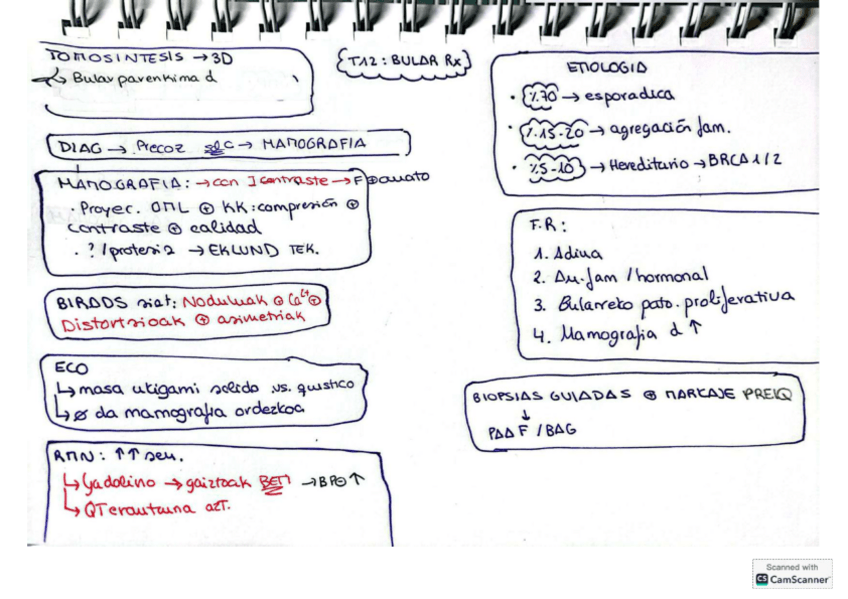 TOMOSINTESIS → 3D
↳ Bular parenkima d
DIAG → Precoz → MAMOGRAFIA
MAMOGRAFIA: → con] contraste → F⊕ auato
· Proyec. OML ⊕ KK: compresión ⊕
contraste ⊕ calidad
· ?/protesiz → EKLUND TEK.
BIRADS siat: Noduluak ⊕ Ca²⁺ ⊕
Distortsioak ⊕ asimetriak
ECO
↳ masa utigami solido vs. quistico
↳ ø da mamografia ordezkoa
RMN: ↑↑ sen.
↳ Gadolino → gaiztoak BETI → BPO ↑
↳ QT erantzuna azt.
T12: BULAR RX
ETIOLOGIA
· %70 → esporadica
· %15-20 → agregación fam.
· %5-10 → Hereditario → BRCA 1/2
F.R:
1. Adina
2. An. fam / hormonal
3. Bularreko pato. proliferativa
4. Mamografia d ↑
BIOPSIAS GUIADAS ⊕ MARKAJE PREIQ
↓
PAAF / BAG
Scanned with
CS CamScanner